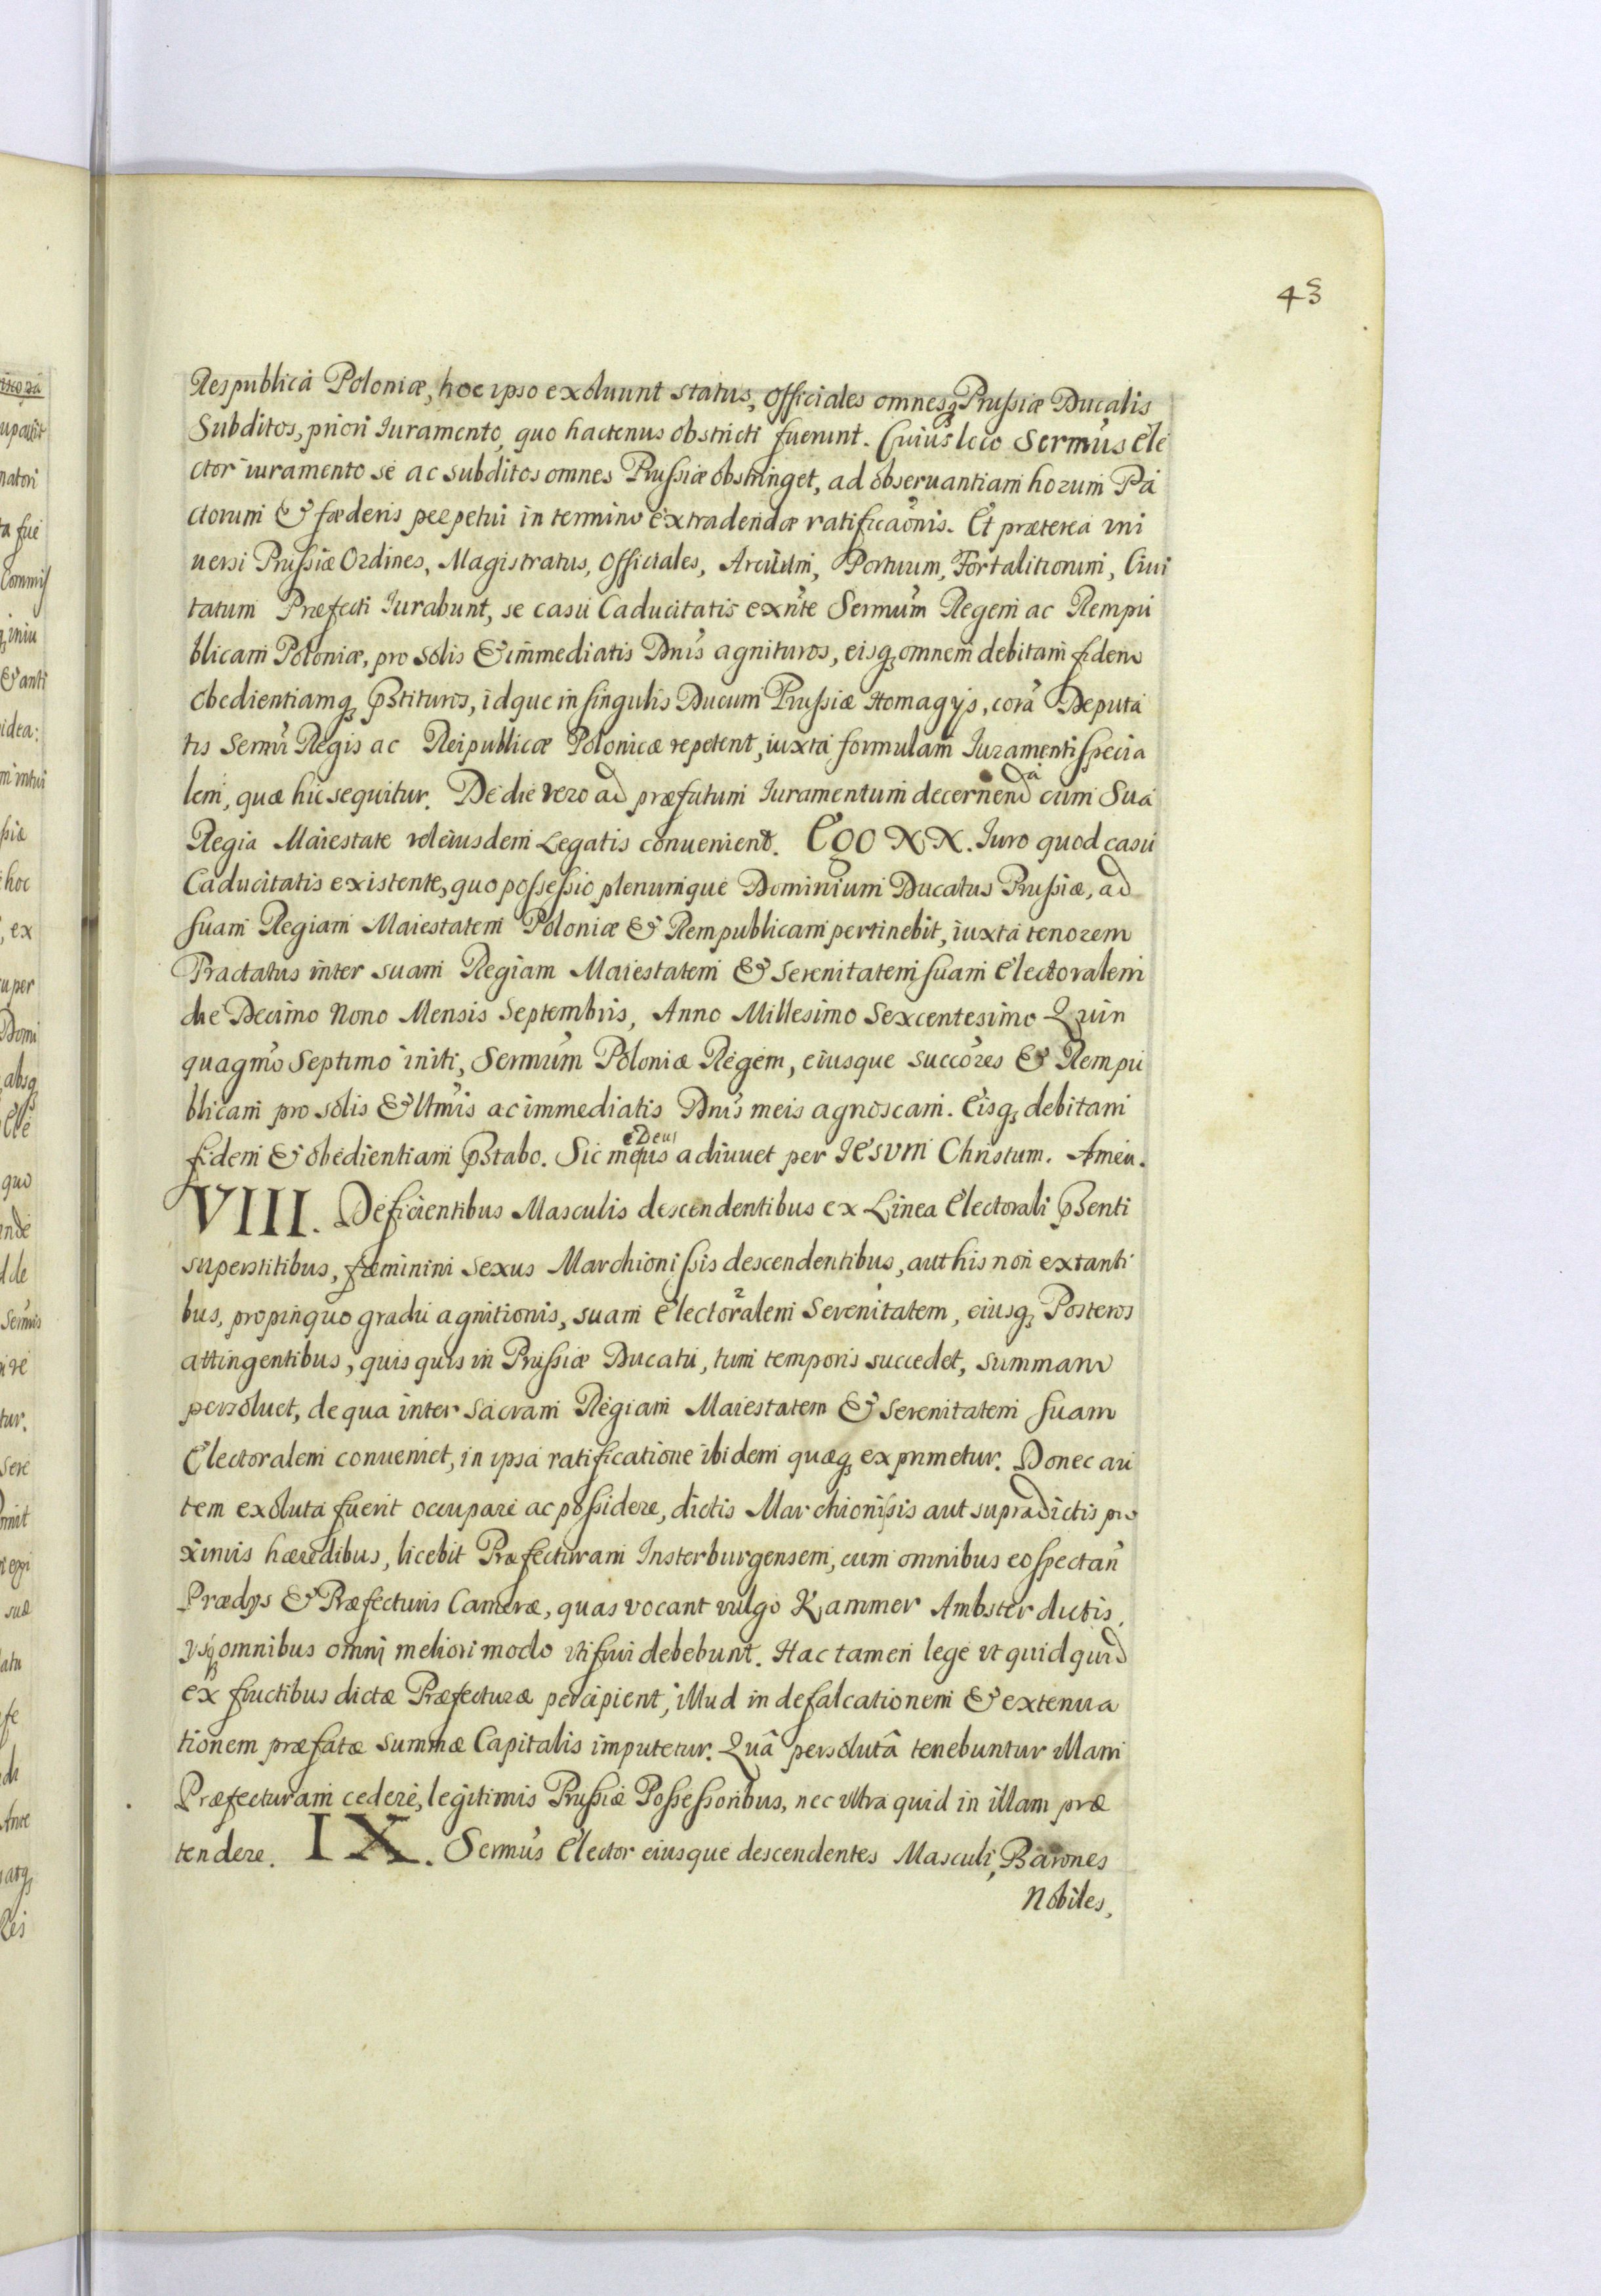 43
Respublica Poloniæ, hoc ipso exoluunt status, Officiales omnesq Prussiæ Ducalis
Subditos, priori Iuramento, quo hactenus obstricti fuerunt. Cuius loco Sermus Ele
ctor iuramento se ac subditos omnes Prussiæ obstringet, ad obseruantiam horum Pa
ctorum & fæderis perpetui in termino extradendæ ratificaõnis. Et præterea vni
uersi Prussiæ Ordines, Magistratus, Officiales, Arcium, Portuum, Fortalitiorum, Ciui
tatum Præfecti Iurabunt, se casu Caducitatis exñte Sermum Regem ac Rempu
blicam Poloniæ, pro solis & immediatis Dnis agnituros, eisq omnem debitam fidem
obedientiamq pstituros, idque in singulis Ducum Prussiæ Homagijs, corã Deputa
tis Sermi Regis ac Reipublicæ Polonicæ repetent, iuxta formulam Iuramenti specia
lem, quæ hic sequitur. De die vero ad præfatum Iuramentum decernenda cum Sua
Regia Maiestate vel eiusdem Legatis convenient. Ego NN. Iuro quod casu
Caducitatis existente, quo possessio plenumque Dominium Ducatus Prussiæ, ad
suam Regiam Maiestatem Poloniæ & Rempublicam pertinebit, iuxta tenorem
Tractatus inter suam Regiam Maiestatem & Serenitatem suam Electoralem
die Decimo Nono Mensis Septembris, Anno Millesimo Sexcentesimo Quin
quagmo Septimo initi, Sermum Poloniæ Regem, eiusque succores & Rempu
blicam pro solis & Vltmis ac immediatis Dnis meis agnoscam. Eisq debitam
fidem & obedientiam pstabo. Sic me Deus adiuuet per IESVM Christum. Amen.
VIII. Deficientibus Masculis descendentibus ex Linea Electorali psenti
superstitibus, fæminini sexus Marchionissis descendentibus, aut his non extanti
bus, propinquo gradu agnitionis, suam Electoralem Serenitatem, eiusq Posteros
attingentibus, quisquis in Prussiæ Ducatu, tum temporis succedet, summam
persoluet, de qua inter Sacram Regiam Maiestatem & Serenitatem suam
Electoralem conueniet, in ipsa ratificatione ibidem quæq exprimetur. Donec au
tem exoluta fuerit occupare ac possidere, dictis Marchionissis aut supradictis pro
ximis hæredibus, licebit Præfecturam Insterburgensem, cum omnibus eo spectañ
Prædijs & Præfecturis Cameræ, quas vocant vulgo Kammer Ambster dictis,
ijsq omnibus omni meliori modo vti frui debebunt. Hac tamen lege vt quid quid
ex fructibus dictæ Præfecturæ percipient, illud in defalcationem & extenua
tionem præfatæ summæ Capitalis imputetur. Quâ persolutâ tenebuntur illam
Præfecturam cedere, legitimis Prussiæ Possessoribus, nec vltra quid in illam præ
tendere. IX. Sermus Elector eiusque descendentes Masculi, Barones
Nobiles,